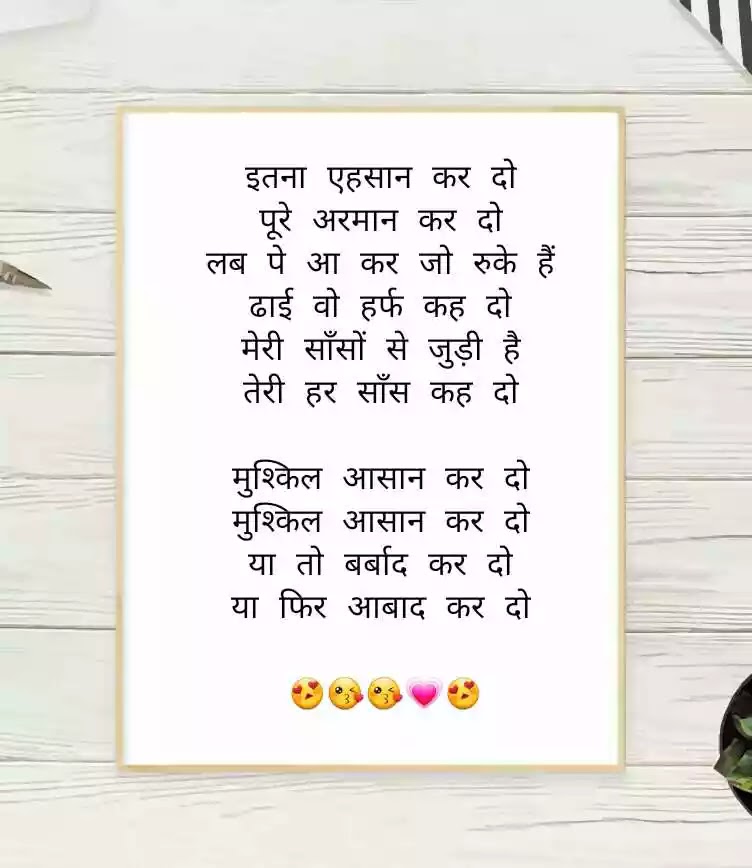 इतना एहसान कर दो
पूरे अरमान कर दो
लब पे आ कर जो रुके हैं
ढाई वो हर्फ कह दो
मेरी साँसों से जुड़ी है
तेरी हर साँस कह दो
मुश्किल आसान कर दो
मुश्किल आसान कर दो
या तो बर्बाद कर दो
या फिर आबाद कर दो
😍😘😘💗😍